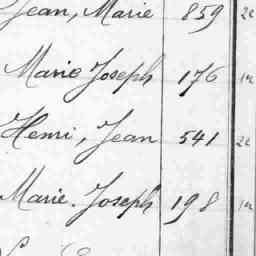 Jean, Marie 859 2e
Marie Joseph 176
Henri, Jean 541 2e
Marie. Joseph 198